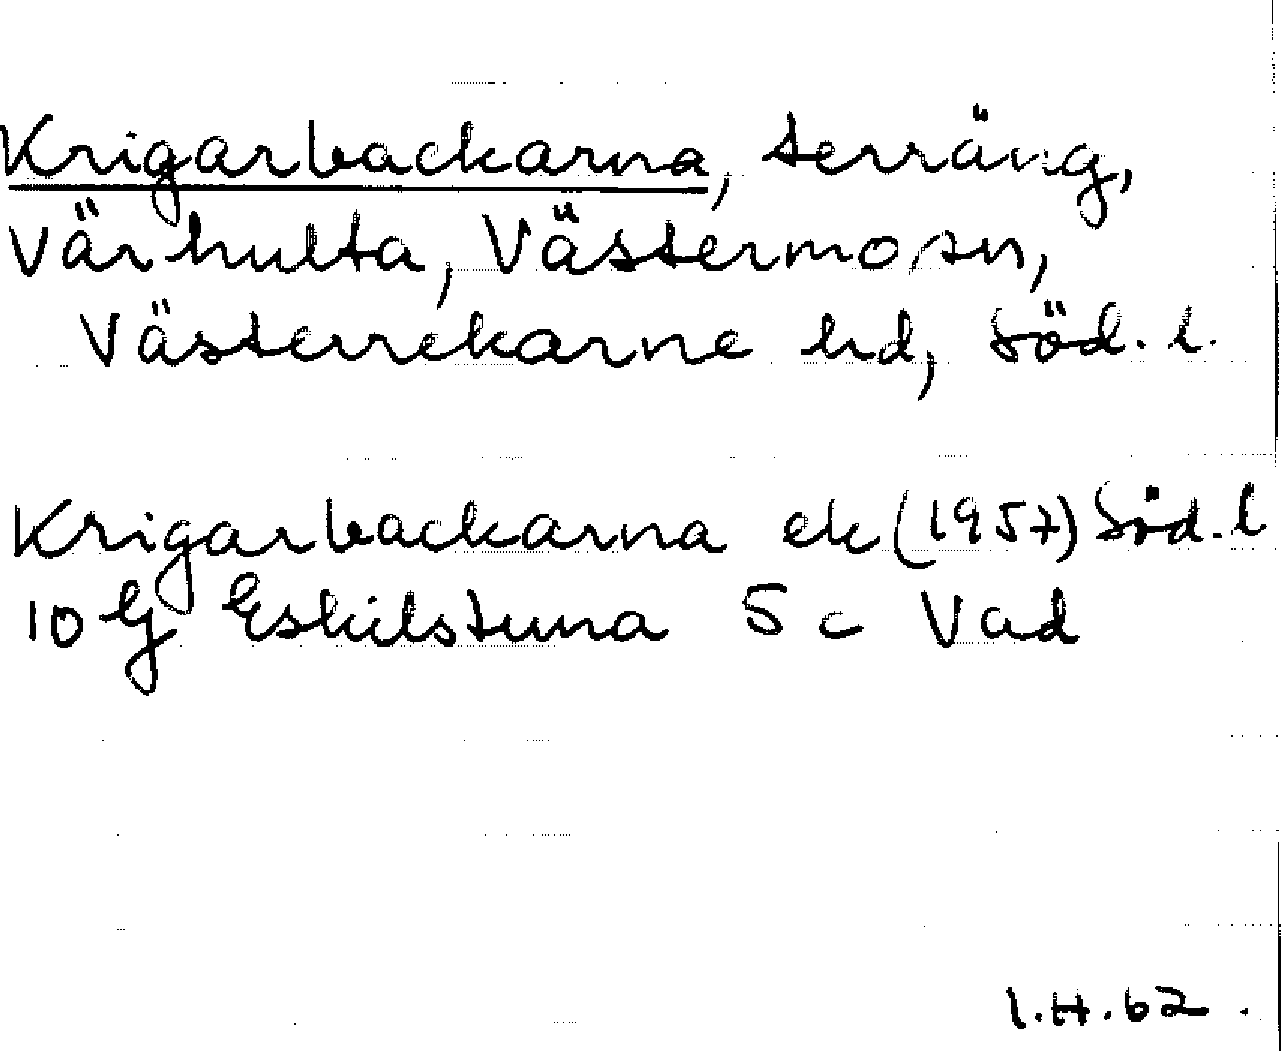 Krigarbackarna, terräng,
Värhulta, Västermo sn,
Västerrekarne hd, Söd. l.
Krigarbackarna ek (1957) Söd. l
10 G Eskilstuna 5 c Vad
I.H.62.